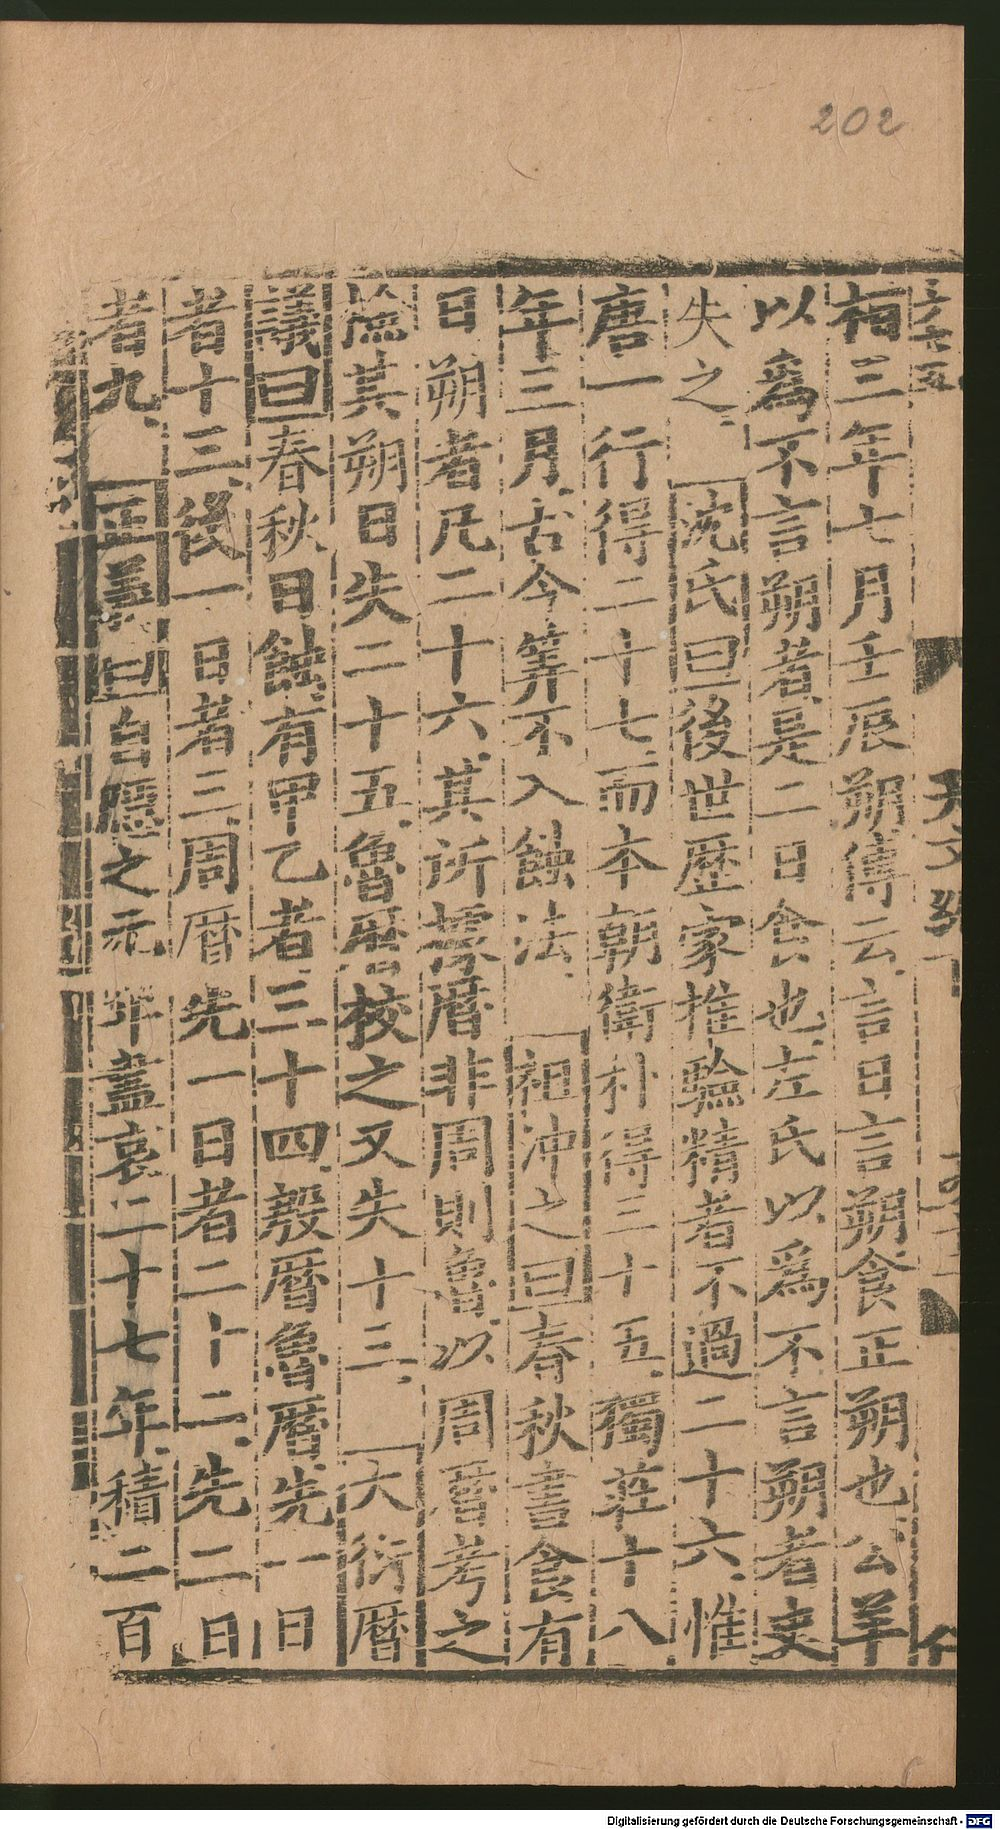 202
桓三年七月壬辰朔傳云言日言朔食正朔也公羊
以爲不言朔者是二日食也左氏以爲不言朔者吏
失之 沈氏曰後世歴家推驗精者不過二十六惟
唐一行得二十七而本朝衛朴得三十五獨莊十八
年三月古今筭不入蝕法 祖沖之曰春秋書食有
日朔者凡二十六其所據曆非周則魯以周曆考之
檢其朔日失二十五魯曆校之又失十三 大衍曆
議曰春秋日蝕有甲乙者三十四殷曆魯曆先一日
者十三後一日者三周曆先一日者二十二先二日
者九 正義曰自隱之元年盡哀二十七年積二百
Digitalisierung gefördert durch die Deutsche Forschungsgemeinschaft - DFG